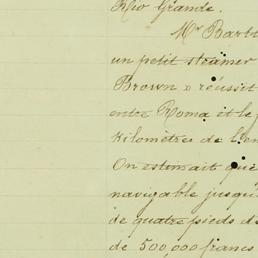 Rio Grande.
Mr Barth
un petit steamer
Brown » réussit
entre Roma et le p
kilomètres de l'em
On estimait que
navigable jusqu'
de quatre pieds de
de 500,000 francs